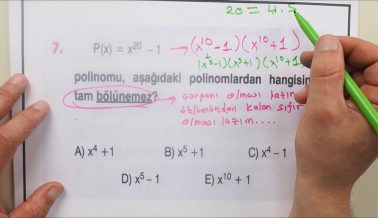 20 = 4.5
7. P(x) = x²⁰ − 1 → (x¹⁰−1)(x¹⁰+1)
(x⁵−1)(x⁵+1)(x¹⁰+1)
polinomu, aşağıdaki polinomlardan hangisin
tam bölünemez? → çarpanı olması lazım
bölümünden kalan sıfır
olması lazım....
A) x⁴ + 1 B) x⁵ + 1 C) x⁴ − 1
D) x⁵ − 1 E) x¹⁰ + 1